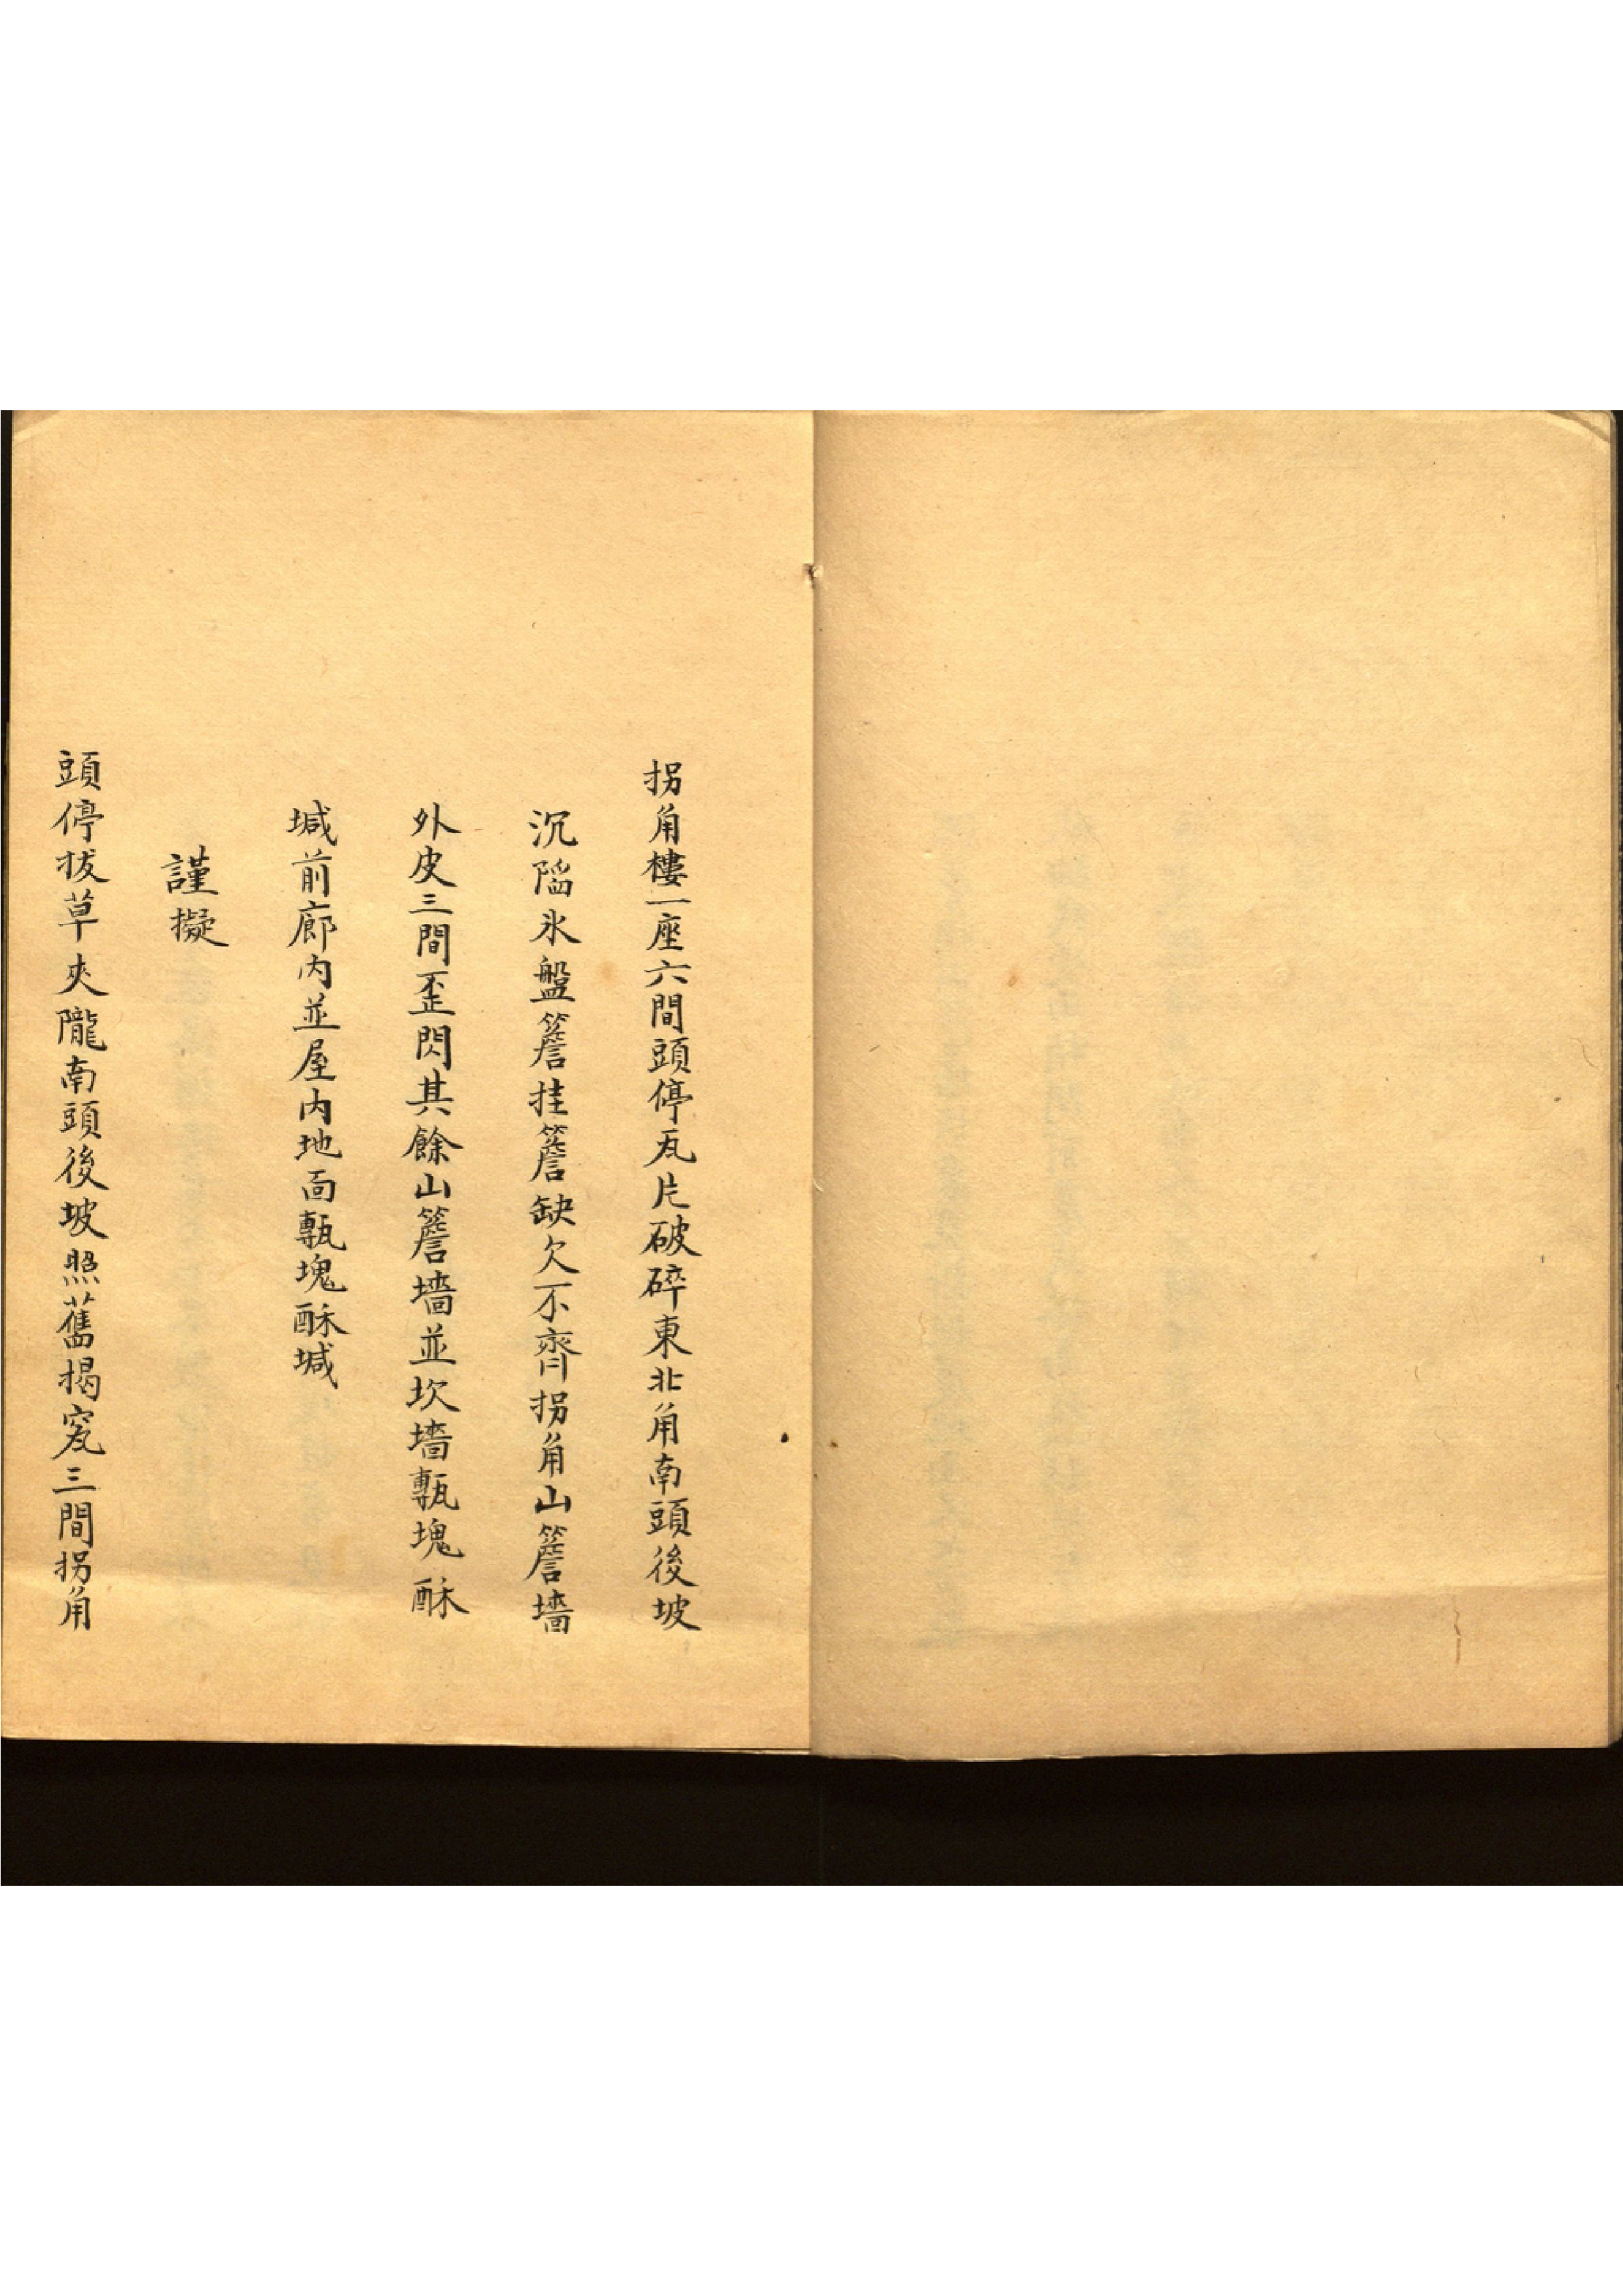 拐角樓一座六間頭停瓦片破碎東北角南頭後坡
沉陷氷盤簷挂簷缺欠不齊拐角山簷墻
外皮三間歪閃其餘山簷墻並坎墻甎塊酥
堿前廊内並屋内地面甎塊酥堿
謹擬
頭停拔草夾隴南頭後坡照舊揭窊三間拐角